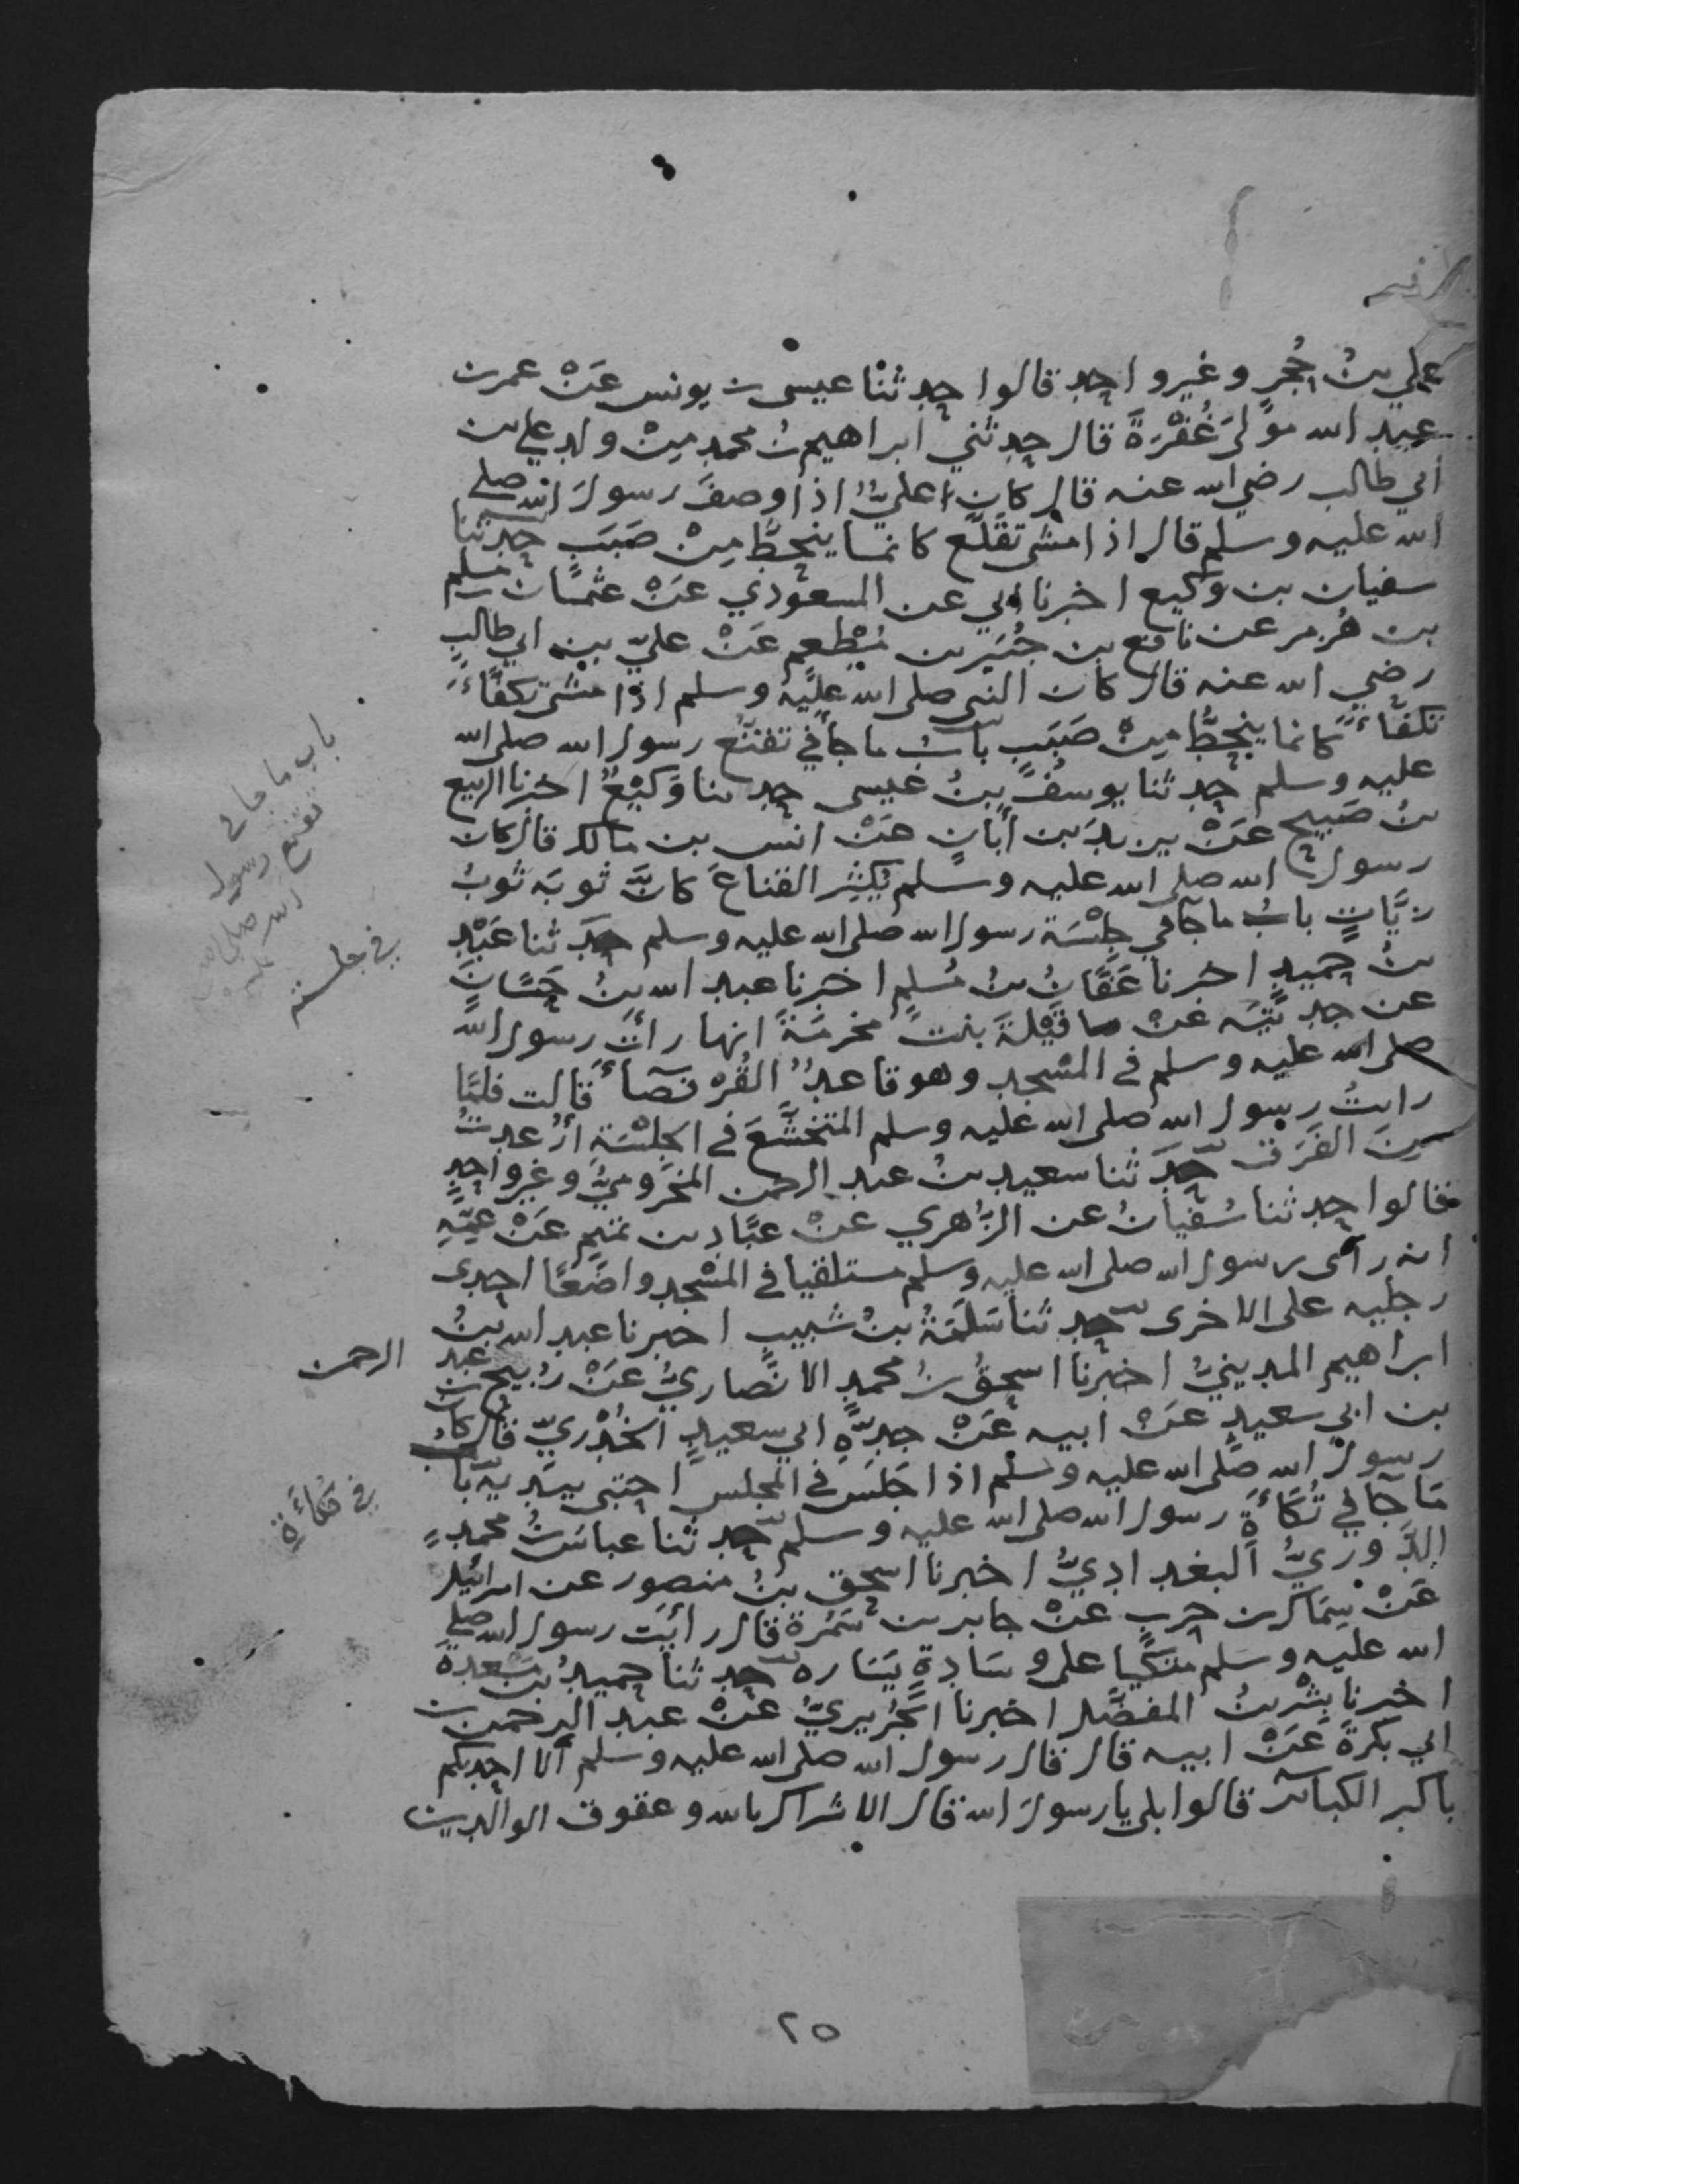 علي بنُ حُجرٍ وغيرواحِدٍ قالوا حدثنا عيسى بن يونس عَنْ عمر بن
عبيد الله مولى غُفْرَةَ قال حدثني ابراهيم بنُ محمدٍ مِنْ ولد علي بن
ابي طالب رضي الله عنه قال كان عليٌّ اذا وصفَ رسولَ الله صلى
الله عليه وسلم قال اذا مشى تقَلَّع كانما ينحطُّ مِنْ صَبَبٍ حدثنا
سفيان بن وكيع اخبرنا ابي عن المسعودي عَنْ عثمان بن مسلم
بن هُرمز عن نافع بن جُبَير بن مُطْعِم عَنْ عليّ بن ابي طالبٍ
رضي الله عنه قال كان النبي صلى الله عليه وسلم اذا مشى تكفّأَ
تكفّأً كانما ينحطُّ مِنْ صَبَبٍ بابُ ما جا في تقنّع رسول الله صلى الله
عليه وسلم حدثنا يوسُفُ بنُ عيسى حدثنا وَكيْعٌ اخبرنا الربيع
بنُ صَبيح عَنْ يزيدَ بن أَبانٍ عَنْ انس بن مالك قال كان
رسول الله صلى الله عليه وسلم يُكثِر القناعَ كانَّ ثوبَه ثوبُ
زيَّاتٍ بابُ ما جآ في جِلْسَة رسول الله صلى الله عليه وسلم حدَثنا عَبْد
بنُ حميدٍ اخبرنا عَفَّانُ بنُ مُسلمٍ اخبرنا عبد الله بنُ حَسَّانَ
عن جدتَيْه عَنْ قَيْلَةَ بنت مخرمَةَ انها رأت رسول الله
صلى الله عليه وسلم في المسْجد وهو قاعدٌ القُرْفصآءَ قالت فلمّا
رايتُ رسول الله صلى الله عليه وسلم المتخشّعَ في الجلْسَةِ أُرْعدتُ
مِنَ الفَرَق حدَثنا سعيد بنُ عبد الرحمن المخزوميُّ وغيرواحِدٍ
قالوا حدثنا سُفيانُ عن الزُّهري عنْ عبَّاد بن تميم عَنْ عمِّهِ
انه رأى رسول الله صلى الله عليه وسلم مستلقيا في المسْجد واضعًا احدى
رجليه على الاخرى حدثنا سَلَمَةُ بنُ شبيبٍ اخبرنا عبد الله بنُ
ابراهيم المدينيُّ اخبرنا اسحقُ بنُ محمدٍ الانصاريُّ عَنْ رُبيح بن عبد
الرحمن
بن ابي سعيد عَنْ ابيه عَنْ جدِّهِ ابي سعيدٍ الخُدْريّ قال كان
رسولُ الله صلى الله عليه وسلم اذا جَلَسَ في المجلس احتبى بيَديه باب
مَا جآ في تُكَأَةِ رسول الله صلى الله عليه وسلم حدثنا عباسُ بنُ محمدٍ
الدُّوريُّ البغداديُّ اخبرنا اسحق بنُ منصور عن اسرائيل
عَنْ سِمَاك بن حربٍ عَنْ جابر بن سَمُرة قال رأيت رسول الله صلى
الله عليه وسلم متكيا على وسَادةٍ يَسَاره حدثنا حميدُ بن مسْعدةَ
اخبرنا بِشْر بنُ المفضّل اخبرنا الجُريريُّ عَنْ عبد الرحمن بن
ابي بكرةَ عَنْ ابيه قال قال رسول الله صلى الله عليه وسلم ألا احدثكم
باكبر الكبائر قالوا بلى يا رسولَ الله قال الاشراك بالله وعقوق الوالدين
باب ما جا في
تقنع رسول
الله صلى الله
في جلسته
في تُكَأَةِ
٢٥